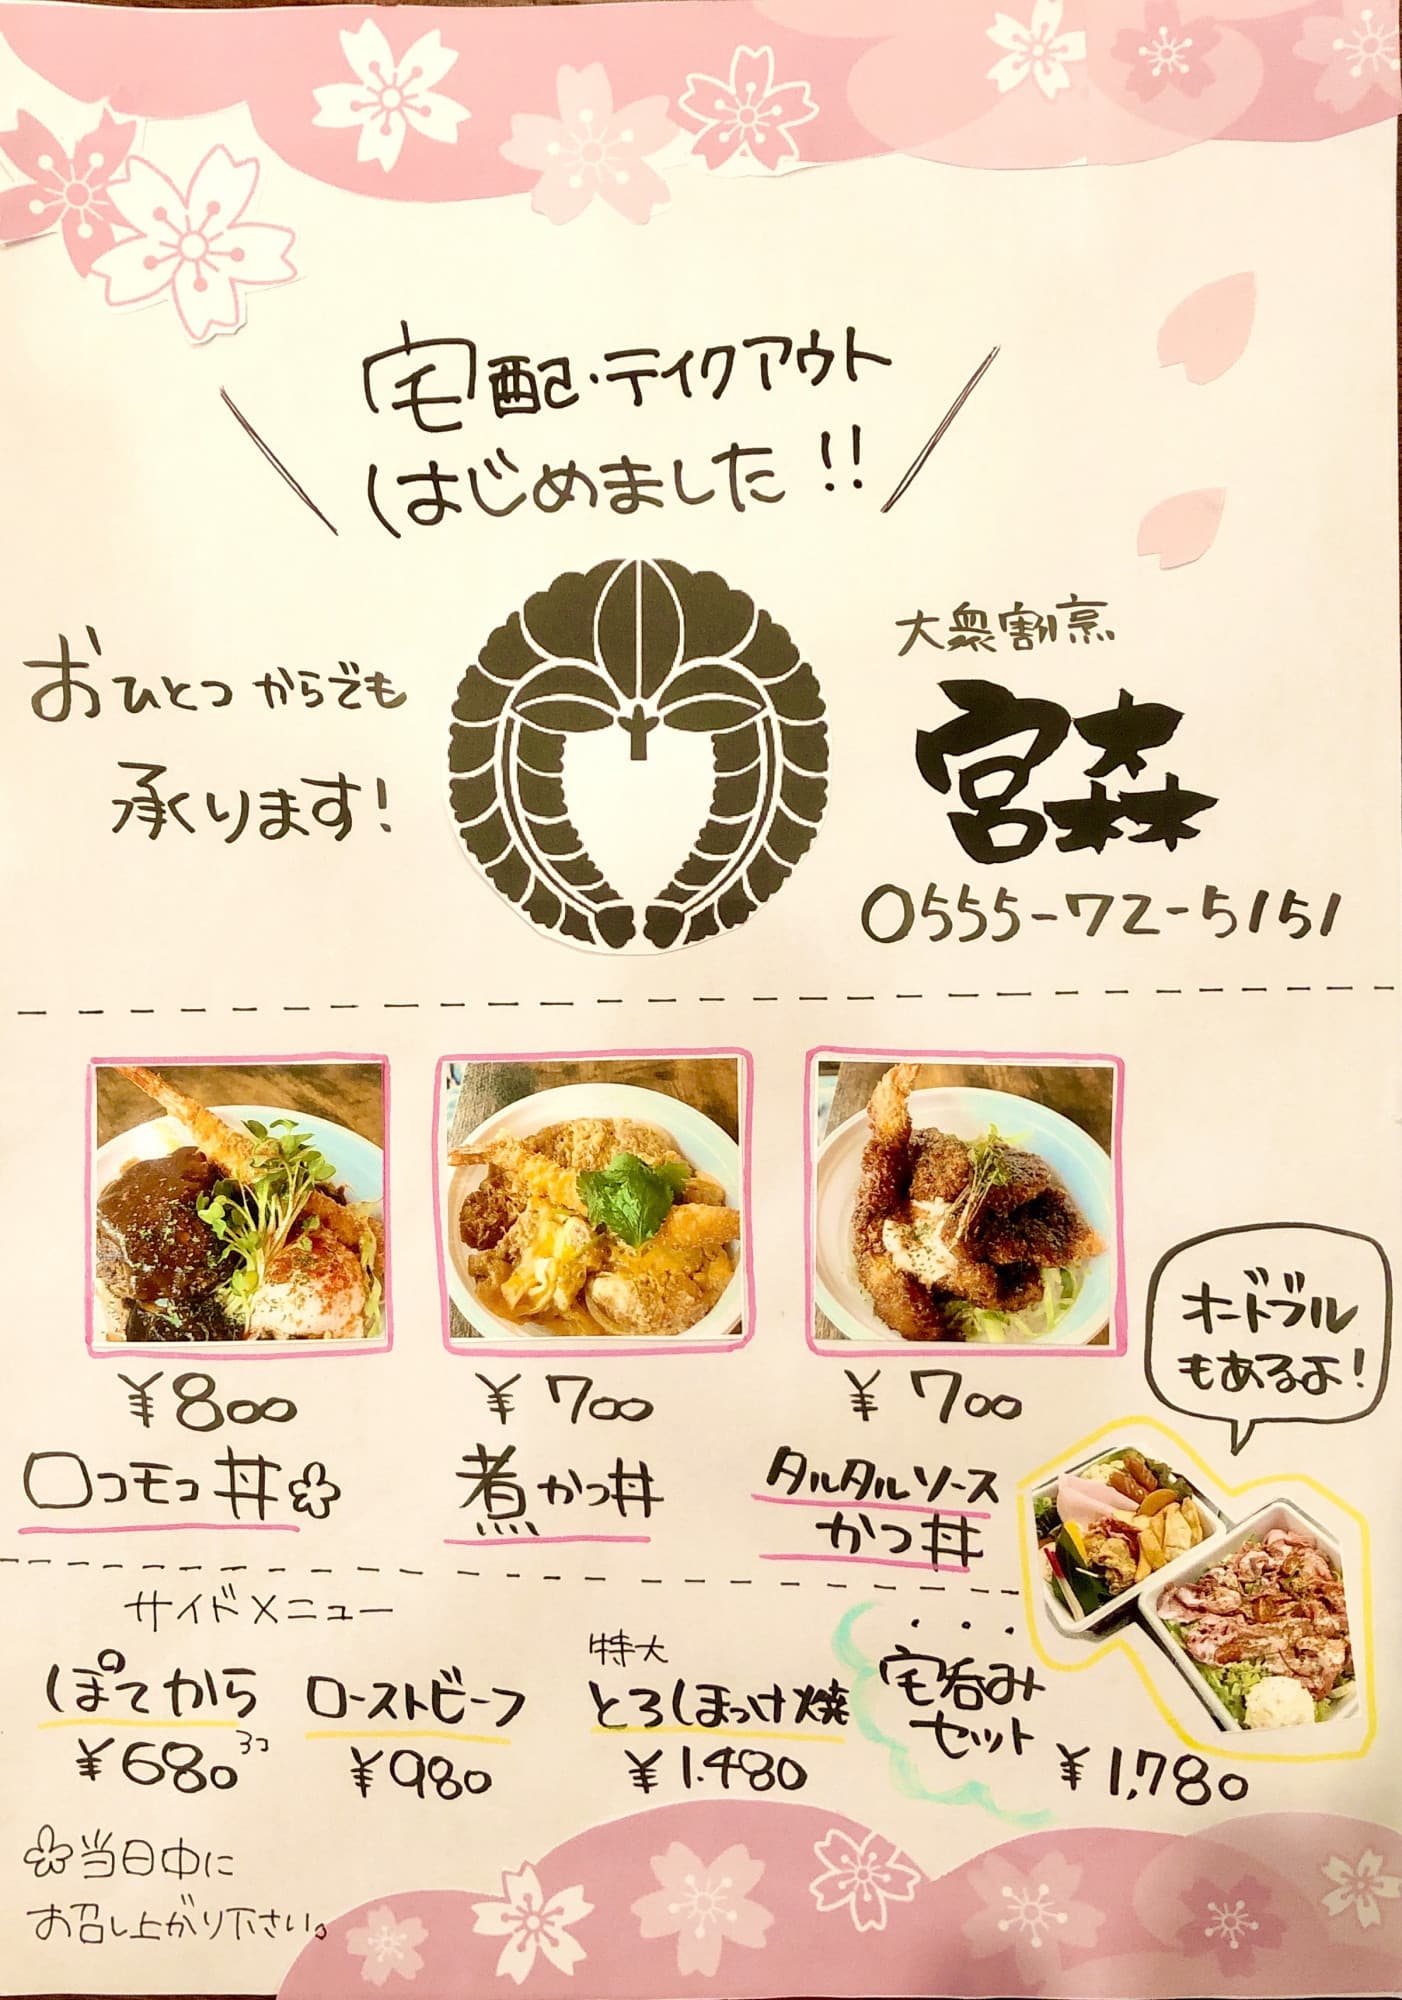 宅配・テイクアウト
はじめました!!
おひとつからでも
承ります!
大衆割烹
宮森
0555-72-5151
オードブル
もあるよ!
¥800
ロコモコ丼
¥700
煮かつ丼
¥700
タルタルソース
かつ丼
サイドメニュー
ぽてから
¥680 3コ
ローストビーフ
¥980
特大
とろしほっけ焼
¥1.480
宅呑み
セット
¥1,780
当日中に
お召し上がり下さい。